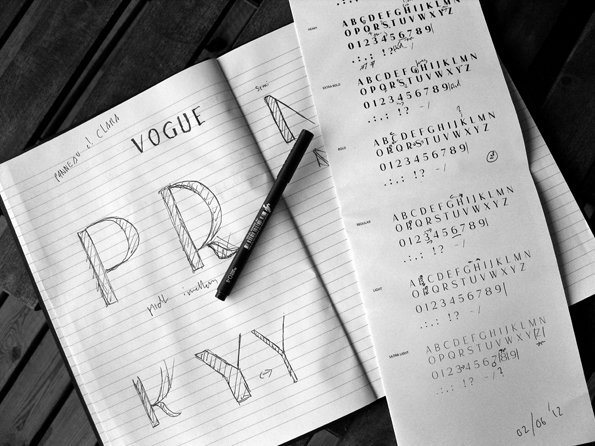 VOGUE
P R
K Y Y
Semi
HEAVY
ABCDEFGHIJKLMN
OPQRSTUVWXYZ
0123456789|
.:,; !? -/
EXTRA BOLD
ABCDEFGHIJKLMN
OPQRSTUVWXYZ
0123456789|
.:,; !? -/
BOLD
ABCDEFGHIJKLMN
OPQRSTUVWXYZ
0123456789|
.:,; !? -/
REGULAR
ABCDEFGHIJKLMN
OPQRSTUVWXYZ
0123456789|
.:,; !? -/
LIGHT
ABCDEFGHIJKLMN
OPQRSTUVWXYZ
0123456789|
.:,; !? -/
ULTRA LIGHT
ABCDEFGHIJKLMN
OPQRSTUVWXYZ
0123456789|
.:,; !? -/
02/06 '12